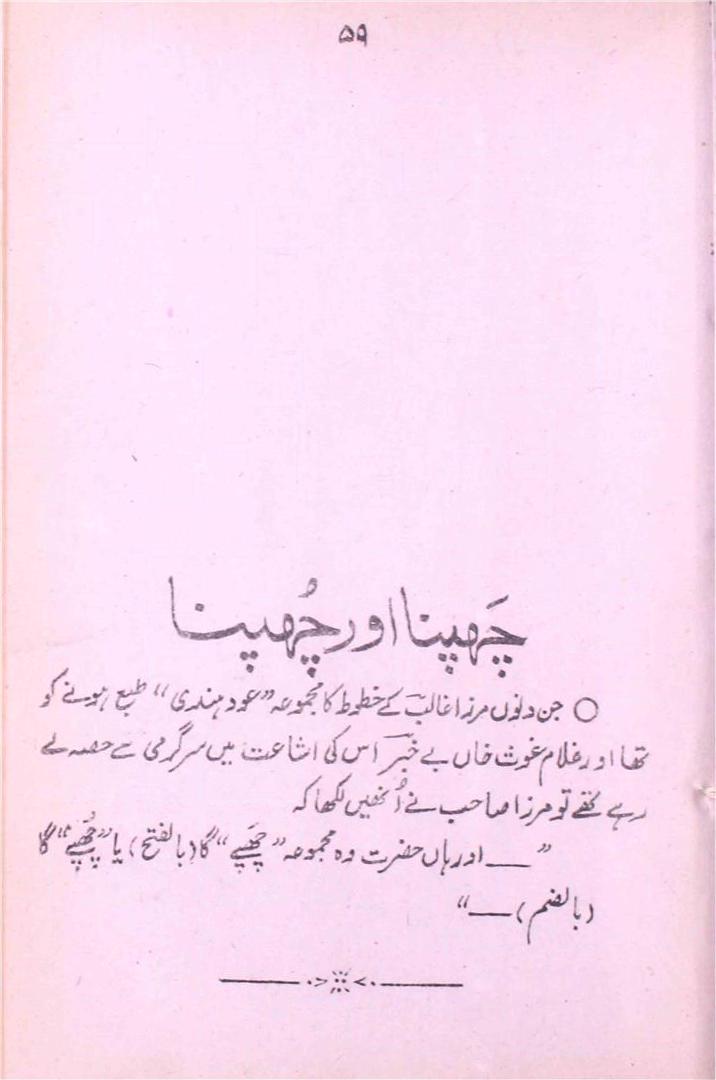 ۵۹
چَھپنا اور چُھپنا
○ جن دنوں مرزا غالبؔ کے خطوط کا مجموعہ "عود ہندی" طبع ہونے کو
تھا اور غلام غوث خاں بے خبرؔ اس کی اشاعت میں سرگرمی سے حصہ لے
رہے تھے تو مرزا صاحب نے اُنھیں لکھا کہ
"ــــ اور ہاں حضرت وہ مجموعہ "چَھپے" گا (بالفتح) یا "چُھپے" گا
(بالضم) ــــ"